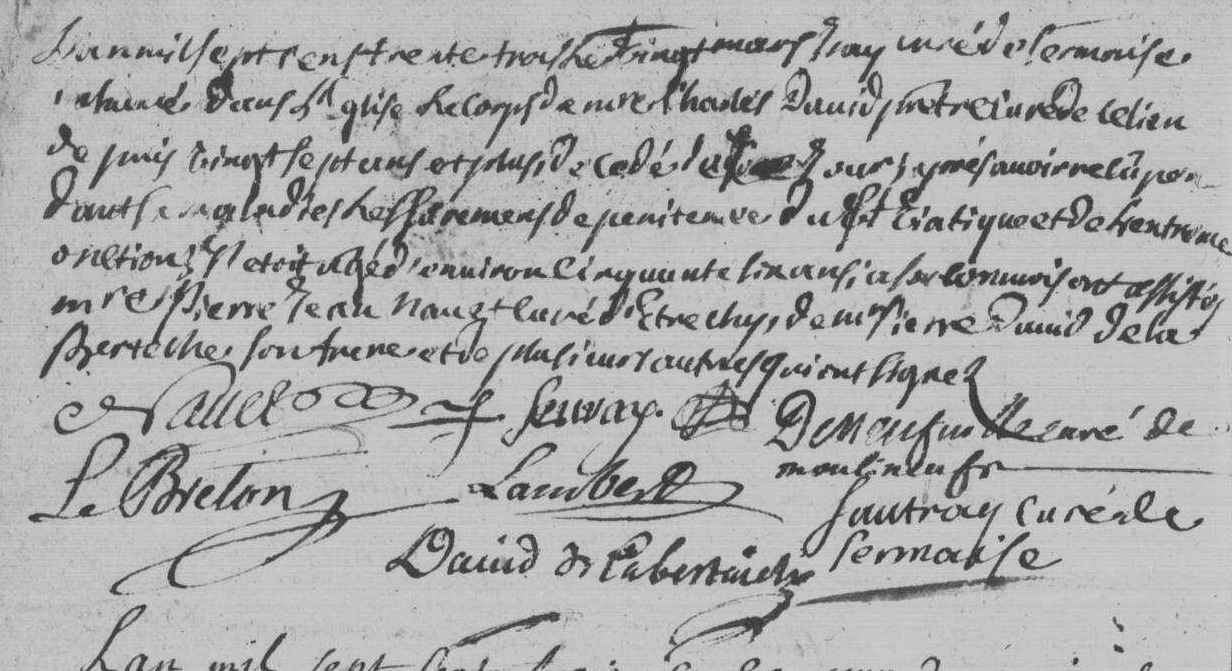 L'an mil sept cens trente trois le vingt mars Jay curé de sermaise
inhumé dans L'Eglise le corps de mre Charles David pretre curé de ce lieu
de puis vingt sept ans et plus decedé apres avoir reçu pen
dant sa maladie les sacremens de penitence du st viatique et de l'extreme
onction Il etoit agé d'environ cinquante six ans ont assistés
mre Pierre Jean Nauet curé d'Etrechy, de mr Pierre David de la
Berteche son frere et de plusieurs autres qui ont signez
Nauet Seuray De Neufville curé de
moulineufs
Le Breton Lambert
Sautray curé de
sermaise
David De Laberteiche
L'an mil sept